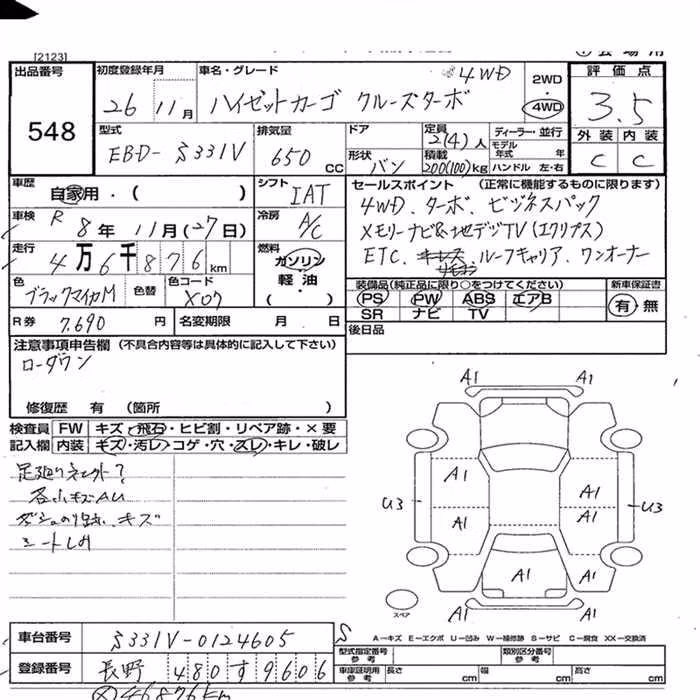 [2123]
出品番号
548
初度登録年月
26 11月
車名・グレード
4WD
ハイゼットカーゴ クルーズターボ
2WD
4WD
評価点
3.5
外装 内装
C C
型式
EBD-S331V
排気量
650 CC
ドア
形状
バン
定員
2(4)人
積載
200(100)kg
ディーラー・並行
モデル年式 年
ハンドル 左・右
車歴
自家用・( )
シフト
IAT
車検
R 8年 11月(27日)
冷房
A/C
走行
4万6千876km
燃料
ガソリン
軽油
( )
色
ブラックマイカM
色替
色コード
X07
セールスポイント (正常に機能するものに限ります)
4WD. ターボ. ビジネスパック
メモリーナビ&地デジTV(エクリプス)
ETC. キーレス ルーフキャリア. ワンオーナー
装備品(純正品に限り○をつけてください)
PS PW ABS エアB
SR ナビ TV
新車保証書
有・無
R券 7,690 円
名変期限 月 日
後日品
注意事項申告欄 (不具合内容等は具体的に記入して下さい)
ローダウン
修復歴 有 (箇所 )
検査員記入欄
FW キズ・飛石・ヒビ割・リペア跡・×要
内装 キズ・汚レ・コゲ・穴・スレ・キレ・破レ
各小キズAU
キズ
A1 A1
A1
A1
A1
A1
U3
U3
A1
A1
A1 A1
スペア
車台番号
S331V-0124605
S
登録番号
長野 480す9606
46876km
A-キズ E-エクボ U-凹み W-補修跡 S-サビ C-腐食 XX-交換済
型式指定番号
参考
類別区分番号
参考
車庫証明用
参考
長さ cm 幅 cm 高さ cm